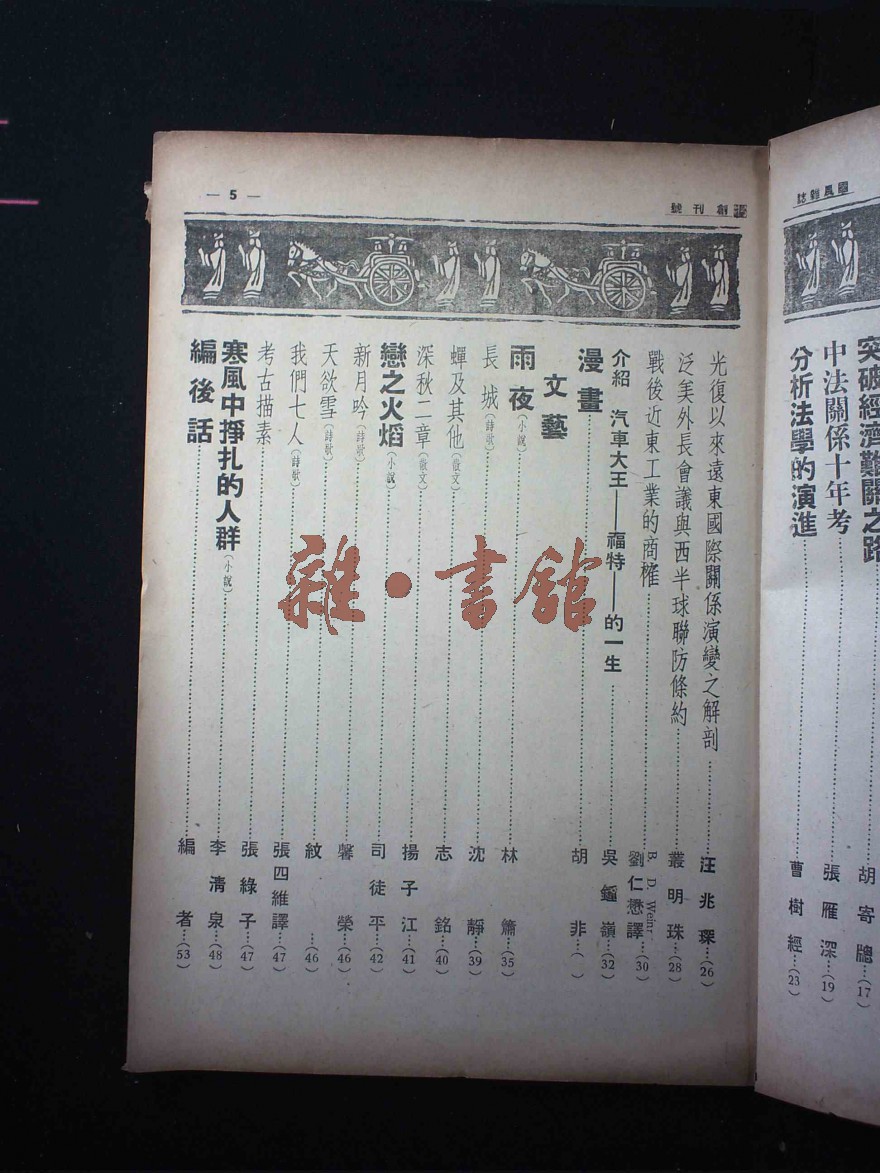 國風雜誌
突破經濟難關之路……胡寄牕…(17)
中法關係十年考……張雁深…(19)
分析法學的演進……曹樹經…(23)
創刊號
— 5 —
光復以來遠東國際關係演變之解剖……汪兆琛…(26)
泛美外長會議與西半球聯防條約……叢明珠…(28)
戰後近東工業的商榷……B. D. Weinr 劉仁懋譯…(30)
介紹 汽車大王——福特——的一生……吳鍾嶺…(32)
漫畫……胡非…( )
文藝
雨夜(小說)……林簫…(35)
長城(詩歌)……沈靜…(39)
蟬及其他(散文)……志銘…(40)
深秋二章(散文)……揚子江…(41)
戀之火熖(小說)……司徒平…(42)
新月吟(詩歌)……馨榮…(46)
天欲雪(詩歌)……紋…(46)
我們七人(詩歌)……張四維譯…(47)
考古描素……張綠子…(47)
寒風中掙扎的人群(小說)……李清泉…(48)
編後話……編者…(53)
雜·書館